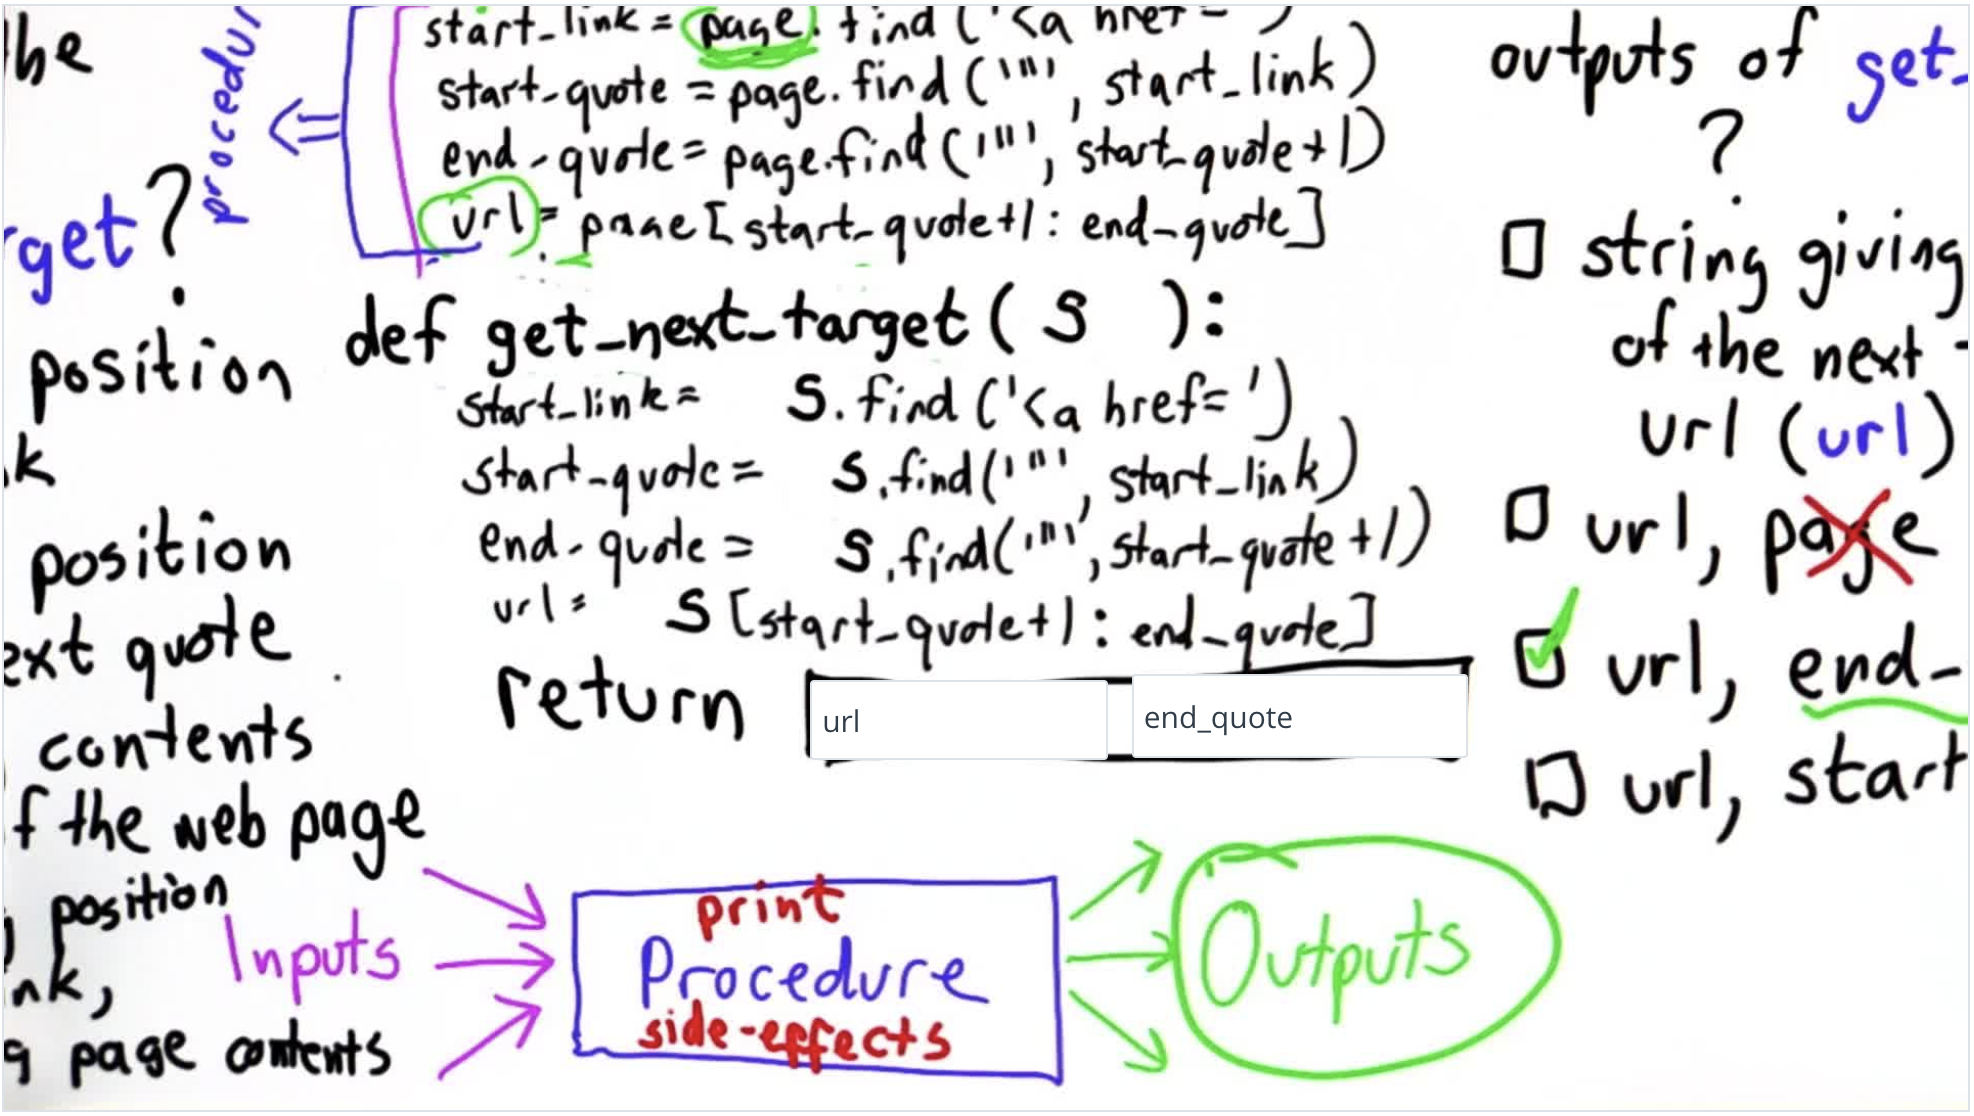 the
get?
position
k
position
ext quote
contents
f the web page
position
nk,
g page contents
procedur
start_link = page.find('<a href=')
start_quote = page.find('"', start_link)
end_quote = page.find('"', start_quote+1)
url = page[start_quote+1: end_quote]
def get_next_target( S ):
start_link = S.find('<a href=')
start_quote = S.find('"', start_link)
end_quote = S.find('"', start_quote+1)
url = S[start_quote+1: end_quote]
return url end_quote
outputs of get_
?
string giving
of the next
url (url)
url, page
url, end_
url, start
Inputs
print
Procedure
side-effects
Outputs